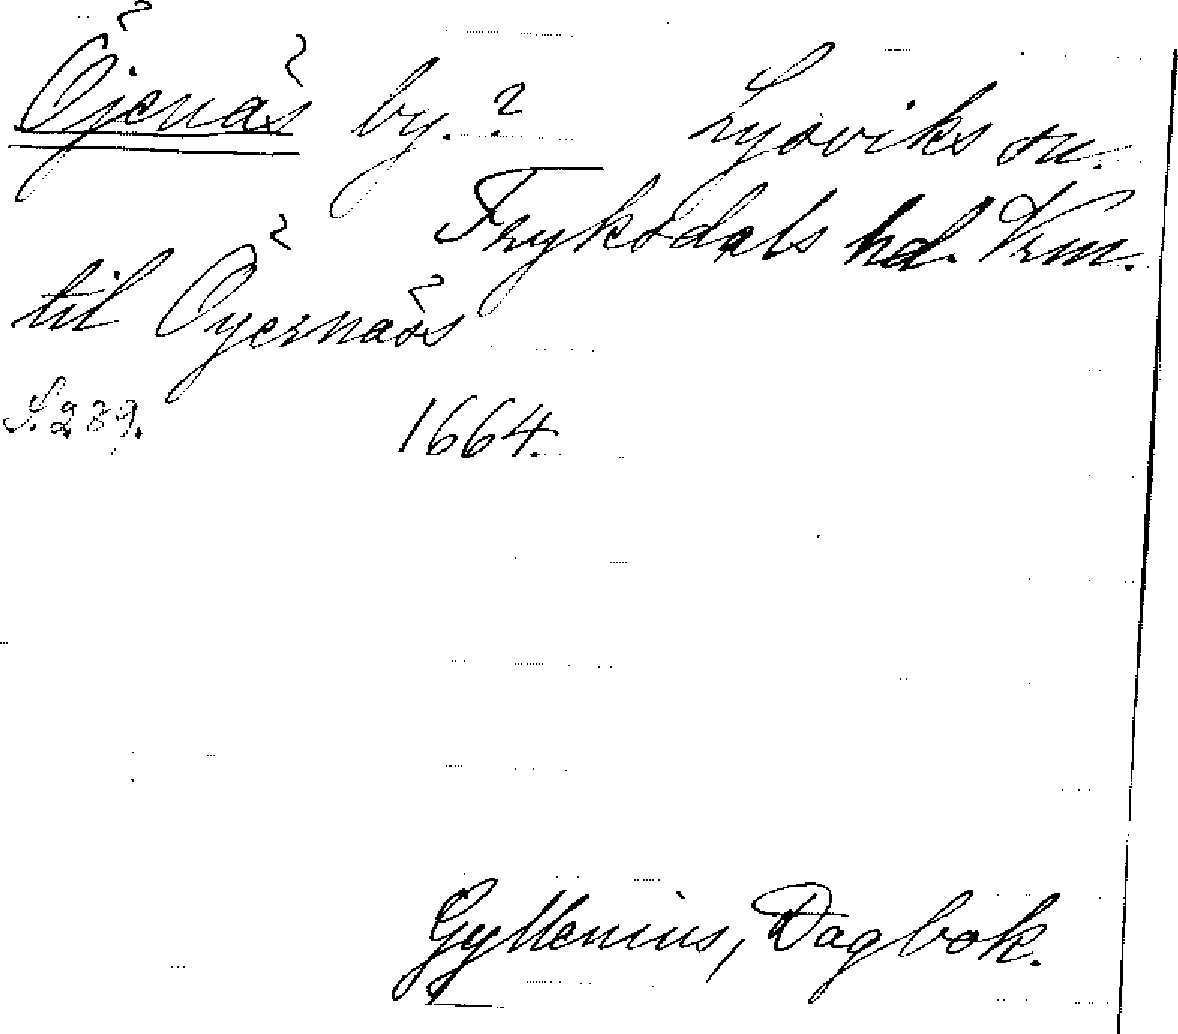 Öjenäs by. ? Lysviks sn.
Fryksdals hd. Vrm.
till Öyernääs
S. 289. 1664.
Gyllenius, Dagbok.